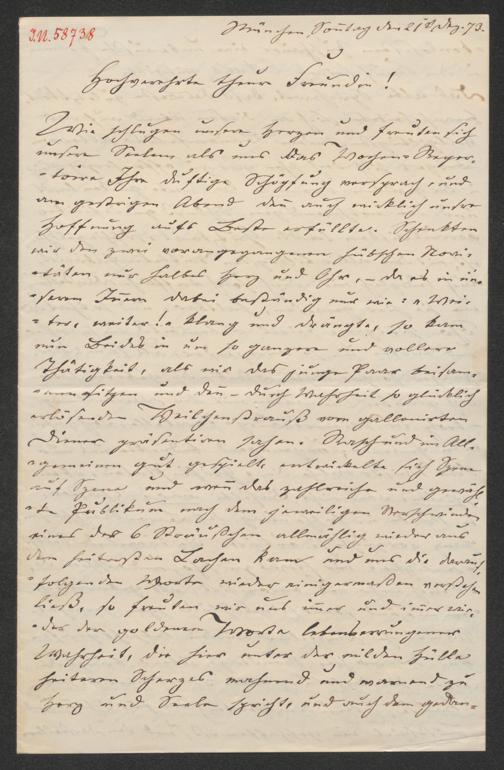 I.N. 58738
München, Sonntag den 21t. Dez. 73.
Hochverehrte theure Freundin!
Wie schlugen unsere Herzen und freuten sich
unsere Seelen, als uns das Wochen-Reper-
-toire Ihre duftige Schöpfung versprach, und
am gestrigen Abend den auch wirklich unsre
Hoffnung aufs Beste erfüllte. Schenkten
wir den zwei vorangegangenen hübschen Novi-
-täten nur halbes Herz und Ohr, – da es in un-
-serem Innern dabei beständig nur wie: "Wei-
-ter, weiter!" klang und drängte, so kam
nun Beides in um so ganzere und vollere
Thätigkeit, als wir das junge Paar beisam-
-mensitzen und den – durch Wahrheit so glücklich
erlösenden Veilchenstrauß vom gallonirten
Diener präsentiren sahen. Rasch und im All-
-gemeinen gut gespielt entwickelte sich Szene
auf Szene und wenn das zahlreiche und gewähl-
-te Publikum nach dem jeweiligen Verschwinden
eines der 6 Sträußchen allmählig wieder aus
dem heitersten Lachen kam und uns die darauf
folgenden Worte wieder einigermaßen verstehen
ließ, so freuten wir uns immer und immer wie-
-der der goldenen Worte lebenserrungener
Wahrheit, die hier unter der milden Hülle
heiteren Scherzes mahnend und warnend zu
Herz und Seele spricht, und auch dem gedan-